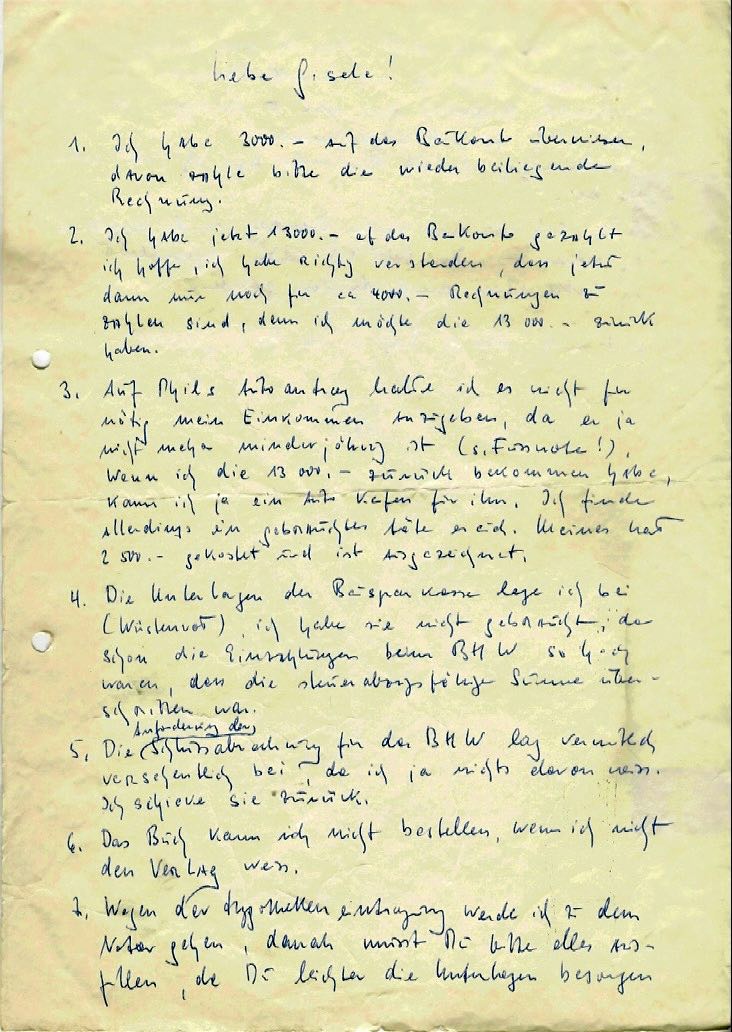 Liebe Gisela!
1. Ich habe 3000.- auf das Baukonto überwiesen,
davon zahle bitte die wieder beiliegende
Rechnung.
2. Ich habe jetzt 13000.- auf das Baukonto gezahlt
ich hoffe, ich habe richtig verstanden, dass jetzt
dann nur noch für ca 4000.- Rechnungen zu
zahlen sind, denn ich möchte die 13 000.- zurück
haben.
3. Auf Phils Autoantrag halte ich es nicht für
nötig mein Einkommen anzugeben, da er ja
nicht mehr minderjährig ist (s. Fussnote!).
Wenn ich die 13 000.- zurück bekommen habe,
kann ich ja ein Auto kaufen für ihn. Ich finde
allerdings ein gebrauchtes täte es auch. Meines hat
2 500.- gekostet und ist ausgezeichnet.
4. Die Unterlagen der Bausparkasse lege ich bei
(Wüstenrot), ich habe sie nicht gebraucht, da
schon die Einzahlungen beim BHW so hoch
waren, dass die steuerabzugsfähige Summe über-
schritten war.
Anforderung der
5. Die Schlussabrechnung für das BHW lag vermutlich
versehentlich bei, da ich ja nichts davon weiss.
Ich schicke sie zurück.
6. Das Buch kann ich nicht bestellen, wenn ich nicht
den Verlag weiss.
7. Wegen der Hypothekeneintragung werde ich zu dem
Notar gehen, danach musst Du bitte alles aus-
füllen, da Du leichter die Unterlagen besorgen